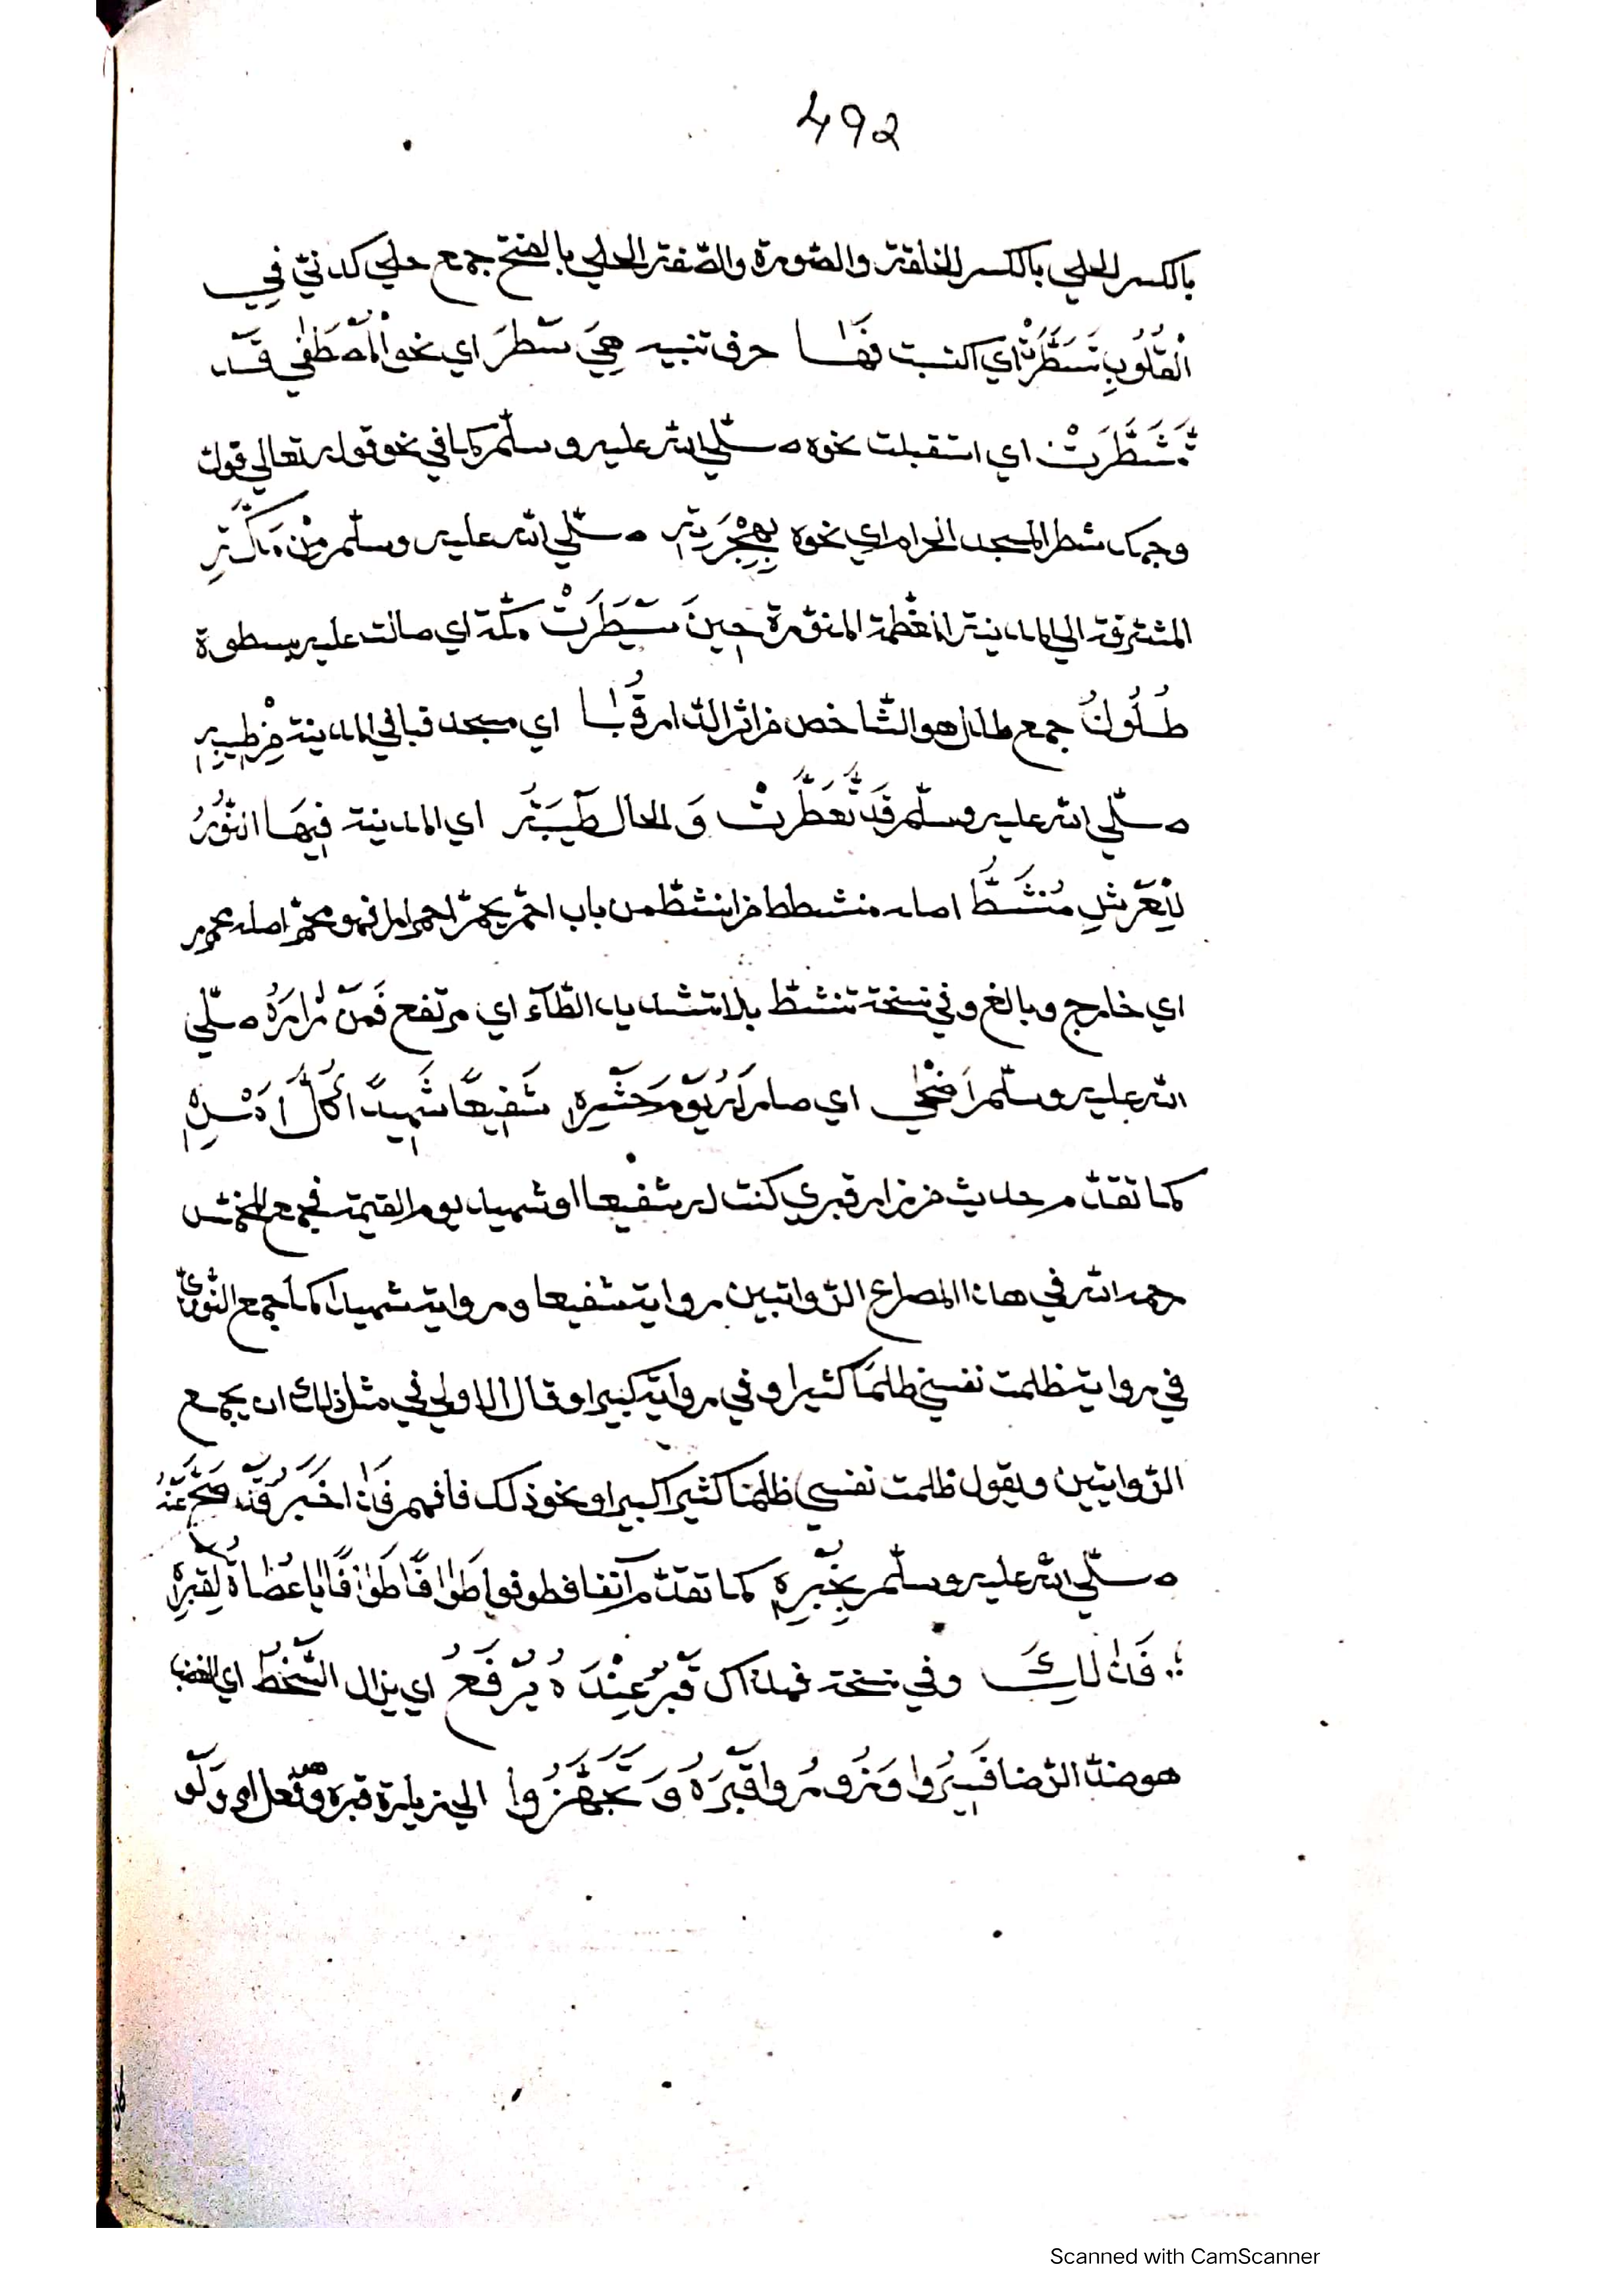 492
بالكسر الحلي بالكسر الخلقة والصورة والصّفة الحلي بالفتح جمع حلي كدنيّ في
الْقُلُوبِ تَسَطَّرَتْ اي اكتبت فَهَا حرف تنبيه هِيَ سَطرَ اي نحو الْمُصْطَفٰي قَد
تَّشَطَّرَتْ اي استقبلت نحوه صلّي الله عليه وسلّم كما في نحو قوله تعالي فول
وجهك شطر المسجد الحرام اي نحوه بِهِجْرَتِهِ صلّي الله عليه وسلّم مِنْ مَكَّةِ
المشرّفة الي المدينة المعظّمة المنوّرة حِينَ سَيْطَرَتْ مكّة اي صالت عليه بسطوة
طُلُولُ جمع طلل هو الشّاخص من اثر الدّار قُبَا اي مسجد قبا في المدينة مِنْ طِيبِهِ
صلّي الله عليه وسلّم قَد تَّعَطَّرَتْ وَ الحال طَيْبَةُ اي المدينة فِيهَا النُّورُ
لِلْعَرْشِ مُنْشَطُّ اصله منشطط من انشطّ من باب احمرّ يحمرّ احمرارا فهو محمرّ اصله محمرر
اي خارج وبالغ وفي نسخة تنشطّ بلا تشديد الطّآء اي مرتفع فَمَنْ زَارَهُ صلّي
الله عليه وسلّم اَضْحٰي اي صار لَهُ يَوْمَ حَشْرِهِ شَفِيعًا شَهِيدًا
كما تقدّم حديث من زار قبري كنت له شفيعا او شهيدا يوم القيمة فجمع المخمّس
رحمه الله في هذا المصراع الرّوايتين رواية شفيعا ورواية شهيدا كما جمع النّوويّ
في رواية ظلمت نفسي ظلمًا كثيرا وفي رواية كبيرا وقال الاولي في مثل ذلك ان يجمع
الرّوايتين ويقول ظلمت نفسي ظلمًا كثيرا كبيرا ونحو ذلك فافهم فَذَا خَبَرٌ قَدْ صَحَّ عَنْهُ
صلّي الله عليه وسلّم بِخُبْرِهِ كما تقدّم آنفا فطوفوا طَوَافًا طَوَافًا يَا عُصَاةُ لِقَبْرِهِ
فَذَالِكَ وفي نسخة فهذاك قَبْرٌ عِنْدَهُ يُرْفَعُ اي يزال السُّخْطُ اي الغضب
هو ضدّ الرّضا فَسِيرُوا وَزُورُوا قَبْرَهُ وَ تَجَهَّزُوا الي زيارة قبره وَلَو
Scanned with CamScanner